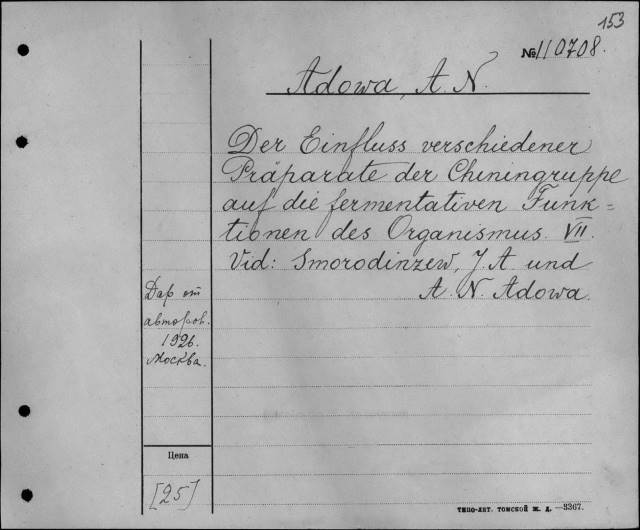 153
№ 110708.
Adowa, A. N.
Der Einfluss verschiedener
Präparate der Chiningruppe
auf die fermentativen Funk=
tionen des Organismus. VII.
Vid: Smorodinzew, J. A. und
A. N. Adowa.
Дар от
авторов.
1926.
Москва.
Цена
[25]
ТИПО-ЛИТ. ТОМСКОЙ Ж. Д. —3367.